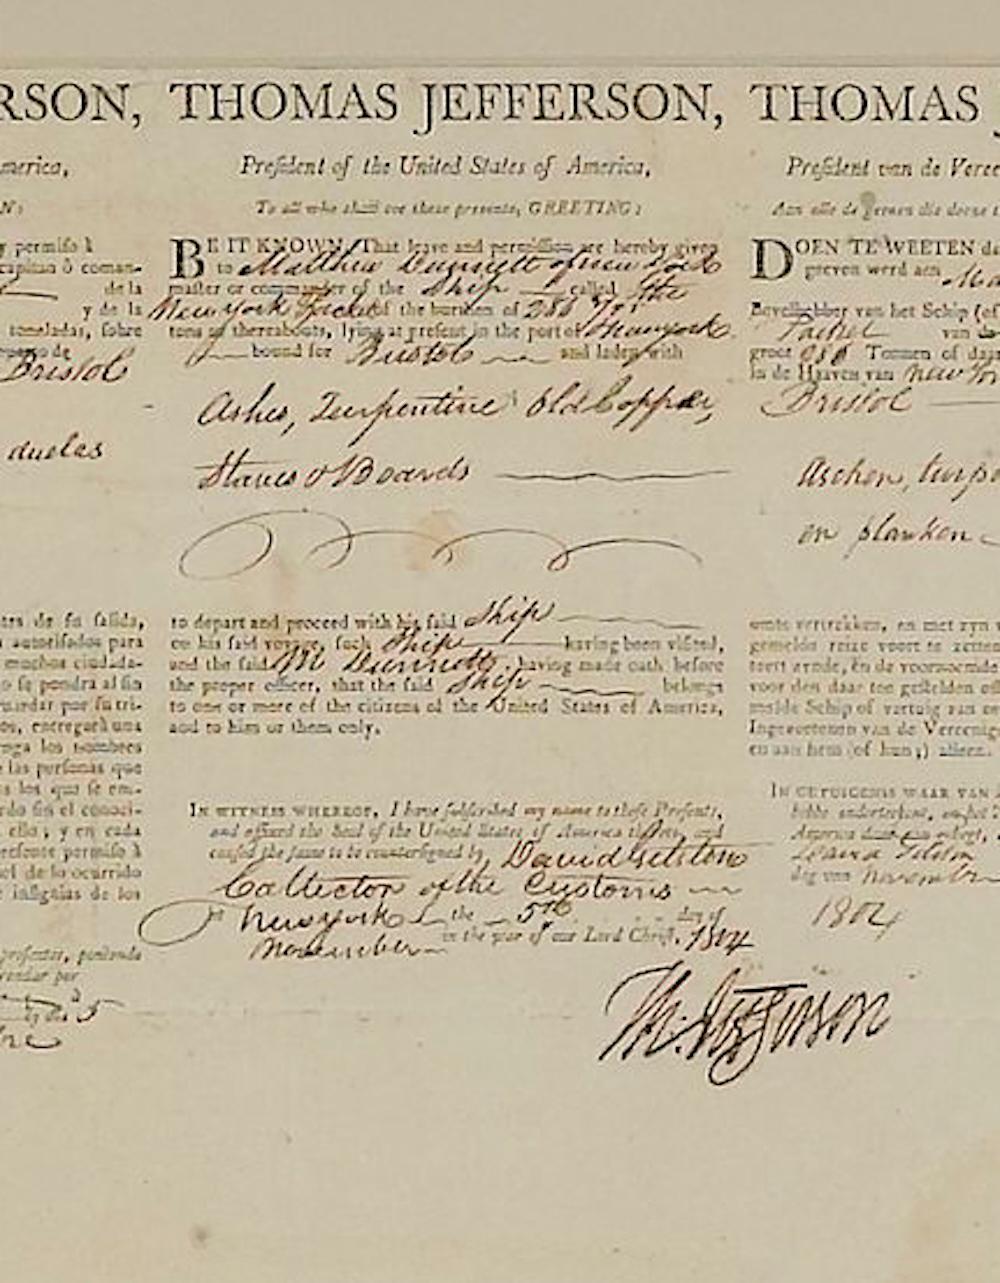 RSON,
merica,
N:
y permiso à
capitan ò coman-
de la
y de la
toneladas, sobre
Bristol
duelas
tes de su salida,
autorisados para
muchos ciudada-
o se pondra al fin
uardar por su tri-
os, entregará una
nga los nombres
las personas que
s los que se em-
rdo sin el conoci-
ello; y en cada
presente permiso à
el de lo ocurrido
e insignias de los
THOMAS JEFFERSON,
President of the United States of America,
To all who shall see these presents, GREETING:
BE IT KNOWN, That leave and permission are hereby given
to Matthew Dunnett of new York
master or commander of the Ship called the
New York Packet of the burthen of 288
tons or thereabouts, lying at present in the port of Newyork
bound for Bristol and laden with
Ashes, Turpentine Old Copper,
Staves & Boards
to depart and proceed with his said Ship
on his said voyage, such Ship having been visited,
and the said M Dunnett having made oath before
the proper officer, that the said Ship belongs
to one or more of the citizens of the United States of America,
and to him or them only.
IN WITNESS WHEREOF, I have subscribed my name to these Presents,
and affixed the Seal of the United States of America thereto, and
caused the same to be countersigned by David Gelston
Collector of the Customs
at Newyork the 5th day of
November in the year of our Lord Christ, 1804
Th: Jefferson
THOMAS J
President van de Veree
Aan alle de geenen die deeze t
DOEN TE WEETEN da
geven werd aen Ma
Bevelhebber van het Schip (of
Packet van
groot 288 Tonnen of daar
in de Haaven van new Yor
Bristol
aschen, turp
en planken
omte vertrekken, en met zyn v
gemelde reize voort te zetten
teert zynde, en de voornoemde
voor den daar toe gestelden off
melde Schip of vartuig aan een
Ingezetenen van de Vereenig
en aan hem (of hun,) alleen.
IN GETUIGENIS WAAR VAN
hebbe ondertekent, en het
America
David Gelston
dag van November
1804